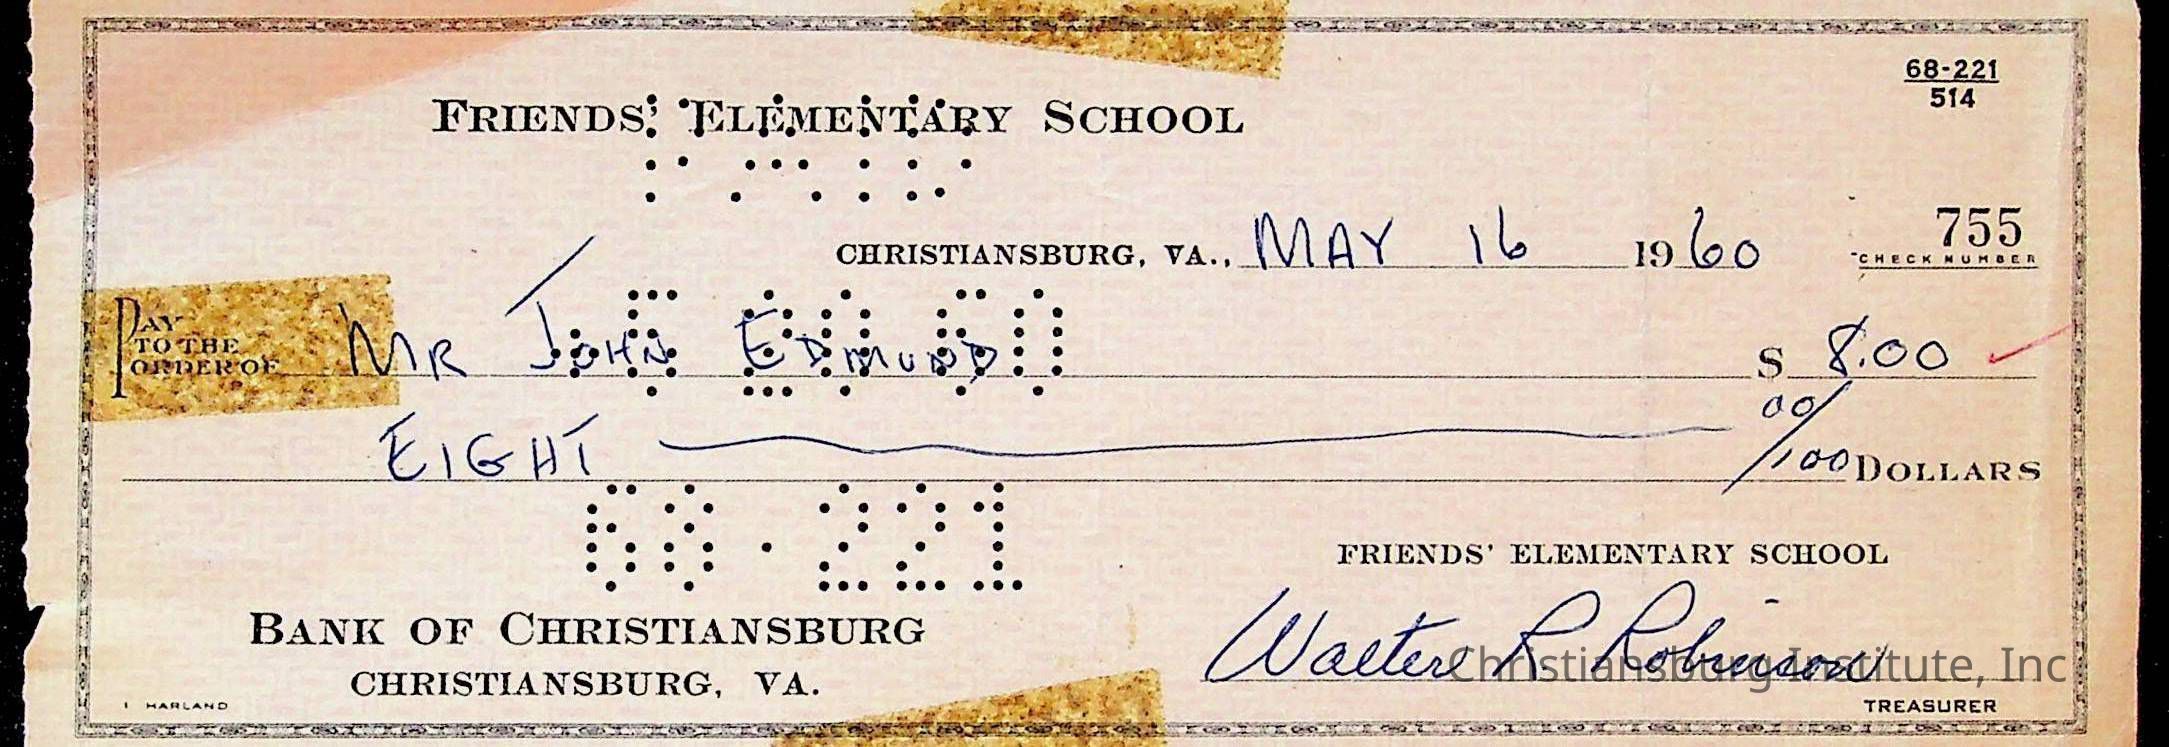 68-221
514
FRIENDS' ELEMENTARY SCHOOL
755
CHRISTIANSBURG, VA., MAY 16 1960 CHECK NUMBER
PAY
TO THE
ORDER OF MR JOHN EDMUND $ 8.00
EIGHT 00/100 DOLLARS
68-221
FRIENDS' ELEMENTARY SCHOOL
BANK OF CHRISTIANSBURG
Walter R Robinson
Christiansburg Institute, Inc
CHRISTIANSBURG, VA.
HARLAND
TREASURER